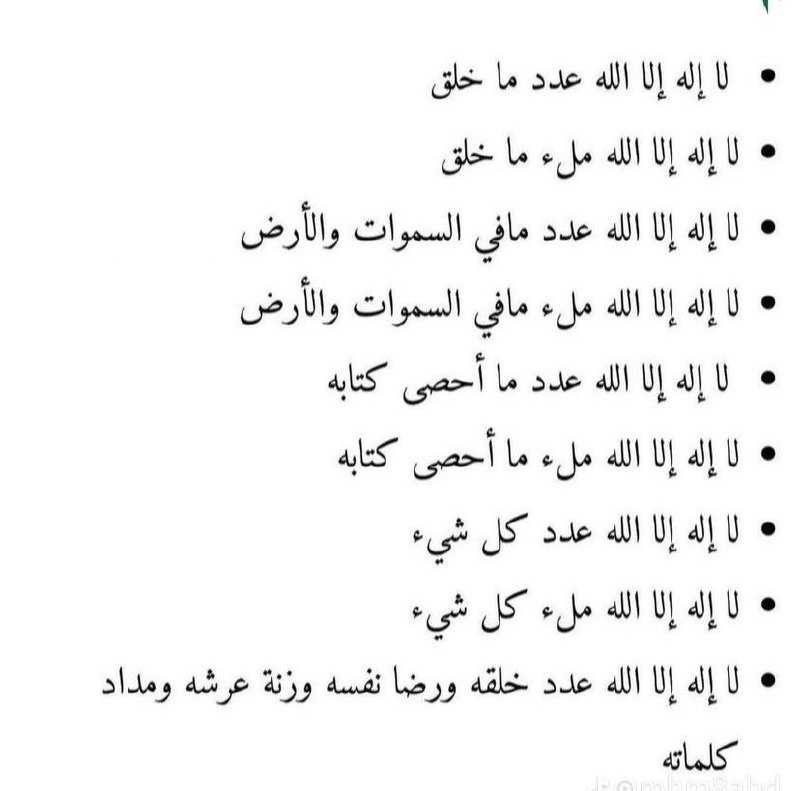 • لا إله إلا الله عدد ما خلق
• لا إله إلا الله ملء ما خلق
• لا إله إلا الله عدد مافي السموات والأرض
• لا إله إلا الله ملء مافي السموات والأرض
• لا إله إلا الله عدد ما أحصى كتابه
• لا إله إلا الله ملء ما أحصى كتابه
• لا إله إلا الله عدد كل شيء
• لا إله إلا الله ملء كل شيء
• لا إله إلا الله عدد خلقه ورضا نفسه وزنة عرشه ومداد
كلماته